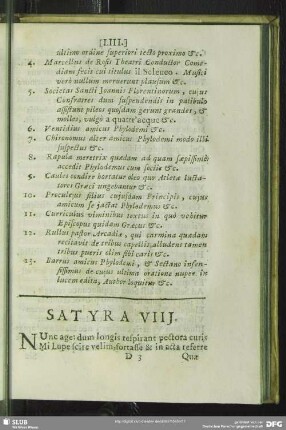 [LIII.]
ultimo ordine superiori tecto proximo &c.
4. Marcellus de Rosis Theatri Conductor Comœ-
diam fecit cui titulus il Sileneo. Musici
verò nullum meruerunt plausum &c.
5. Societas Sancti Joannis Florentinorum, cujus
Confratres dum suspendendis in patibulo
assistunt pileos quosdam gerunt grandes, &
molles, vulgò a quattr'acque &c.
6. Ventidius amicus Phylodemi &c.
7. Chironomus alter amicus Phylodemi modo illi
suspectus &c.
8. Rapula meretrix quædam ad quam sæpissimè
accedit Phylodemus cum sociis &c.
9. Caules condire hortatur oleo quo Atletæ lucta-
tores Græci ungebantur &c.
10. Proculejus filius cujusdam Principis, cujus
amicum se jactat Phylodemus &c.
11. Curriculus viminibus textus in quo vehitur
Episcopus quidam Græcus &c.
12. Rullus pastor Arcadiæ, qui carmina quædam
recitavit de tribus capellis, alludens tamen
tribus pueris olim sibi caris &c.
13. Barrus amicus Phylodemi, & Sectano infen-
sissimus de cujus ultima oratione nuper in
lucem edita, Author loquitur &c.
SATYRA VIIJ.
NUnc age; dum longis respirant pectora curis
Mi Lupe scire velim, fortasse & in acta referre
D 3 Quæ
SLUB
DFG